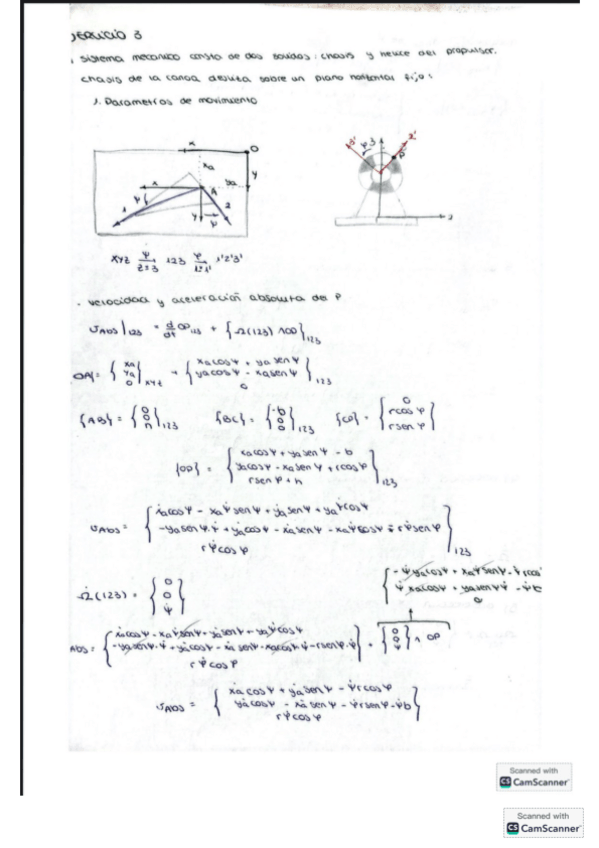 JERCICIO 3
sistema mecanico consta de dos solidos: chasis y helice del propulsor.
chasis de la canoa desliza sobre un plano horizontal fijo:
1. Parametros de movimiento
x O
xa
x A ya y
ψ 1 y ψ 2
3' φ 3 2'
P
2
XYZ ψ/Z=3 123 φ/1=1' 1'2'3'
. velocidad y aceleración absoluta de P
vABS|123 = d/dt OP123 + {Ω(123) ∧ OP}123
OA = {xa ya 0}XYZ → {xa cos ψ + ya sen ψ
ya cos ψ - xa sen ψ
0}123
{AB} = {0 0 h}123 {BC} = {-b 0 0}123 {CP} = {0 r cos φ r sen φ}
{OP} = {xa cos ψ + ya sen ψ - b
ya cos ψ - xa sen ψ + r cos φ
r sen φ + h}123
vABS = {ẋa cos ψ - xa ψ̇ sen ψ + ẏa sen ψ + ya ψ̇ cos ψ
-ya sen ψ ψ̇ + ẏa cos ψ - ẋa sen ψ - xa ψ̇ cos ψ - r φ̇ sen φ
r φ̇ cos φ}123
{-ψ̇ ya cos ψ + xa ψ̇ sen ψ - ψ̇ r cos
ψ̇ xa cos ψ + ya sen ψ ψ̇ - ψ̇ b
0
Ω(123) = {0 0 ψ̇}
ABS = {ẋa cos ψ - xa ψ̇ sen ψ + ẏa sen ψ + ya ψ̇ cos ψ
-ya sen ψ ψ̇ + ẏa cos ψ - ẋa sen ψ - xa cos ψ ψ̇ - r sen φ φ̇
r φ̇ cos φ} + {0 0 ψ̇} ∧ OP
vABS = {ẋa cos ψ + ẏa sen ψ - ψ̇ r cos φ
ẏa cos ψ - ẋa sen ψ - φ̇ r sen φ - ψ̇ b
r φ̇ cos φ}
Scanned with
CS CamScanner
Scanned with
CS CamScanner